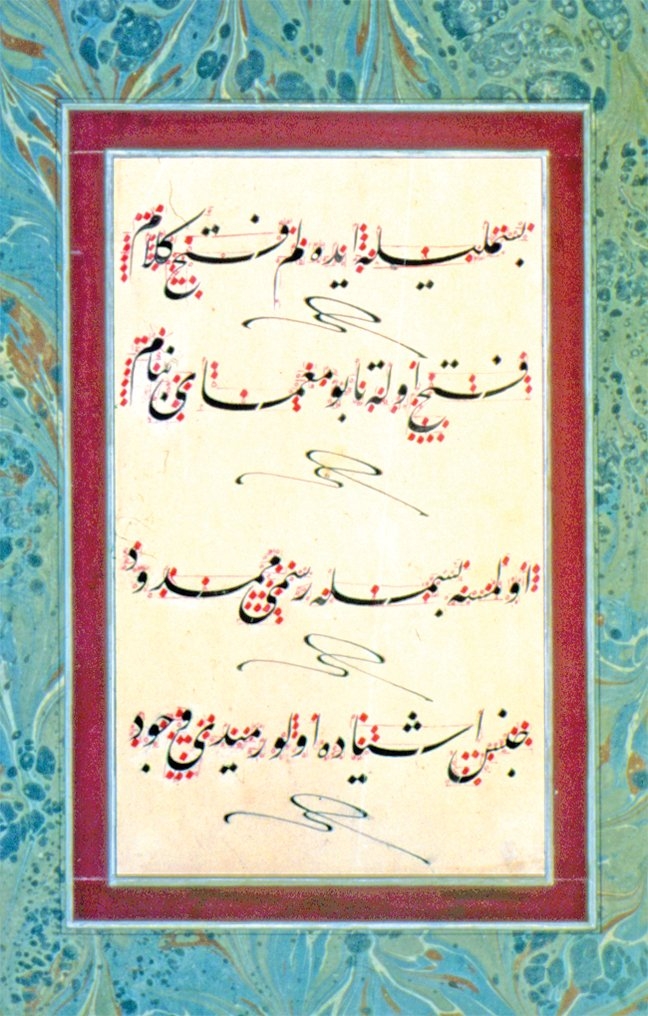 بسمله‌یله ایده‌لم فتح کلام
فتح اوله تا بو معمای بنام
اولمسه بسمله رسمی ممدود
جنس اشیاده اولورمیدی وجود